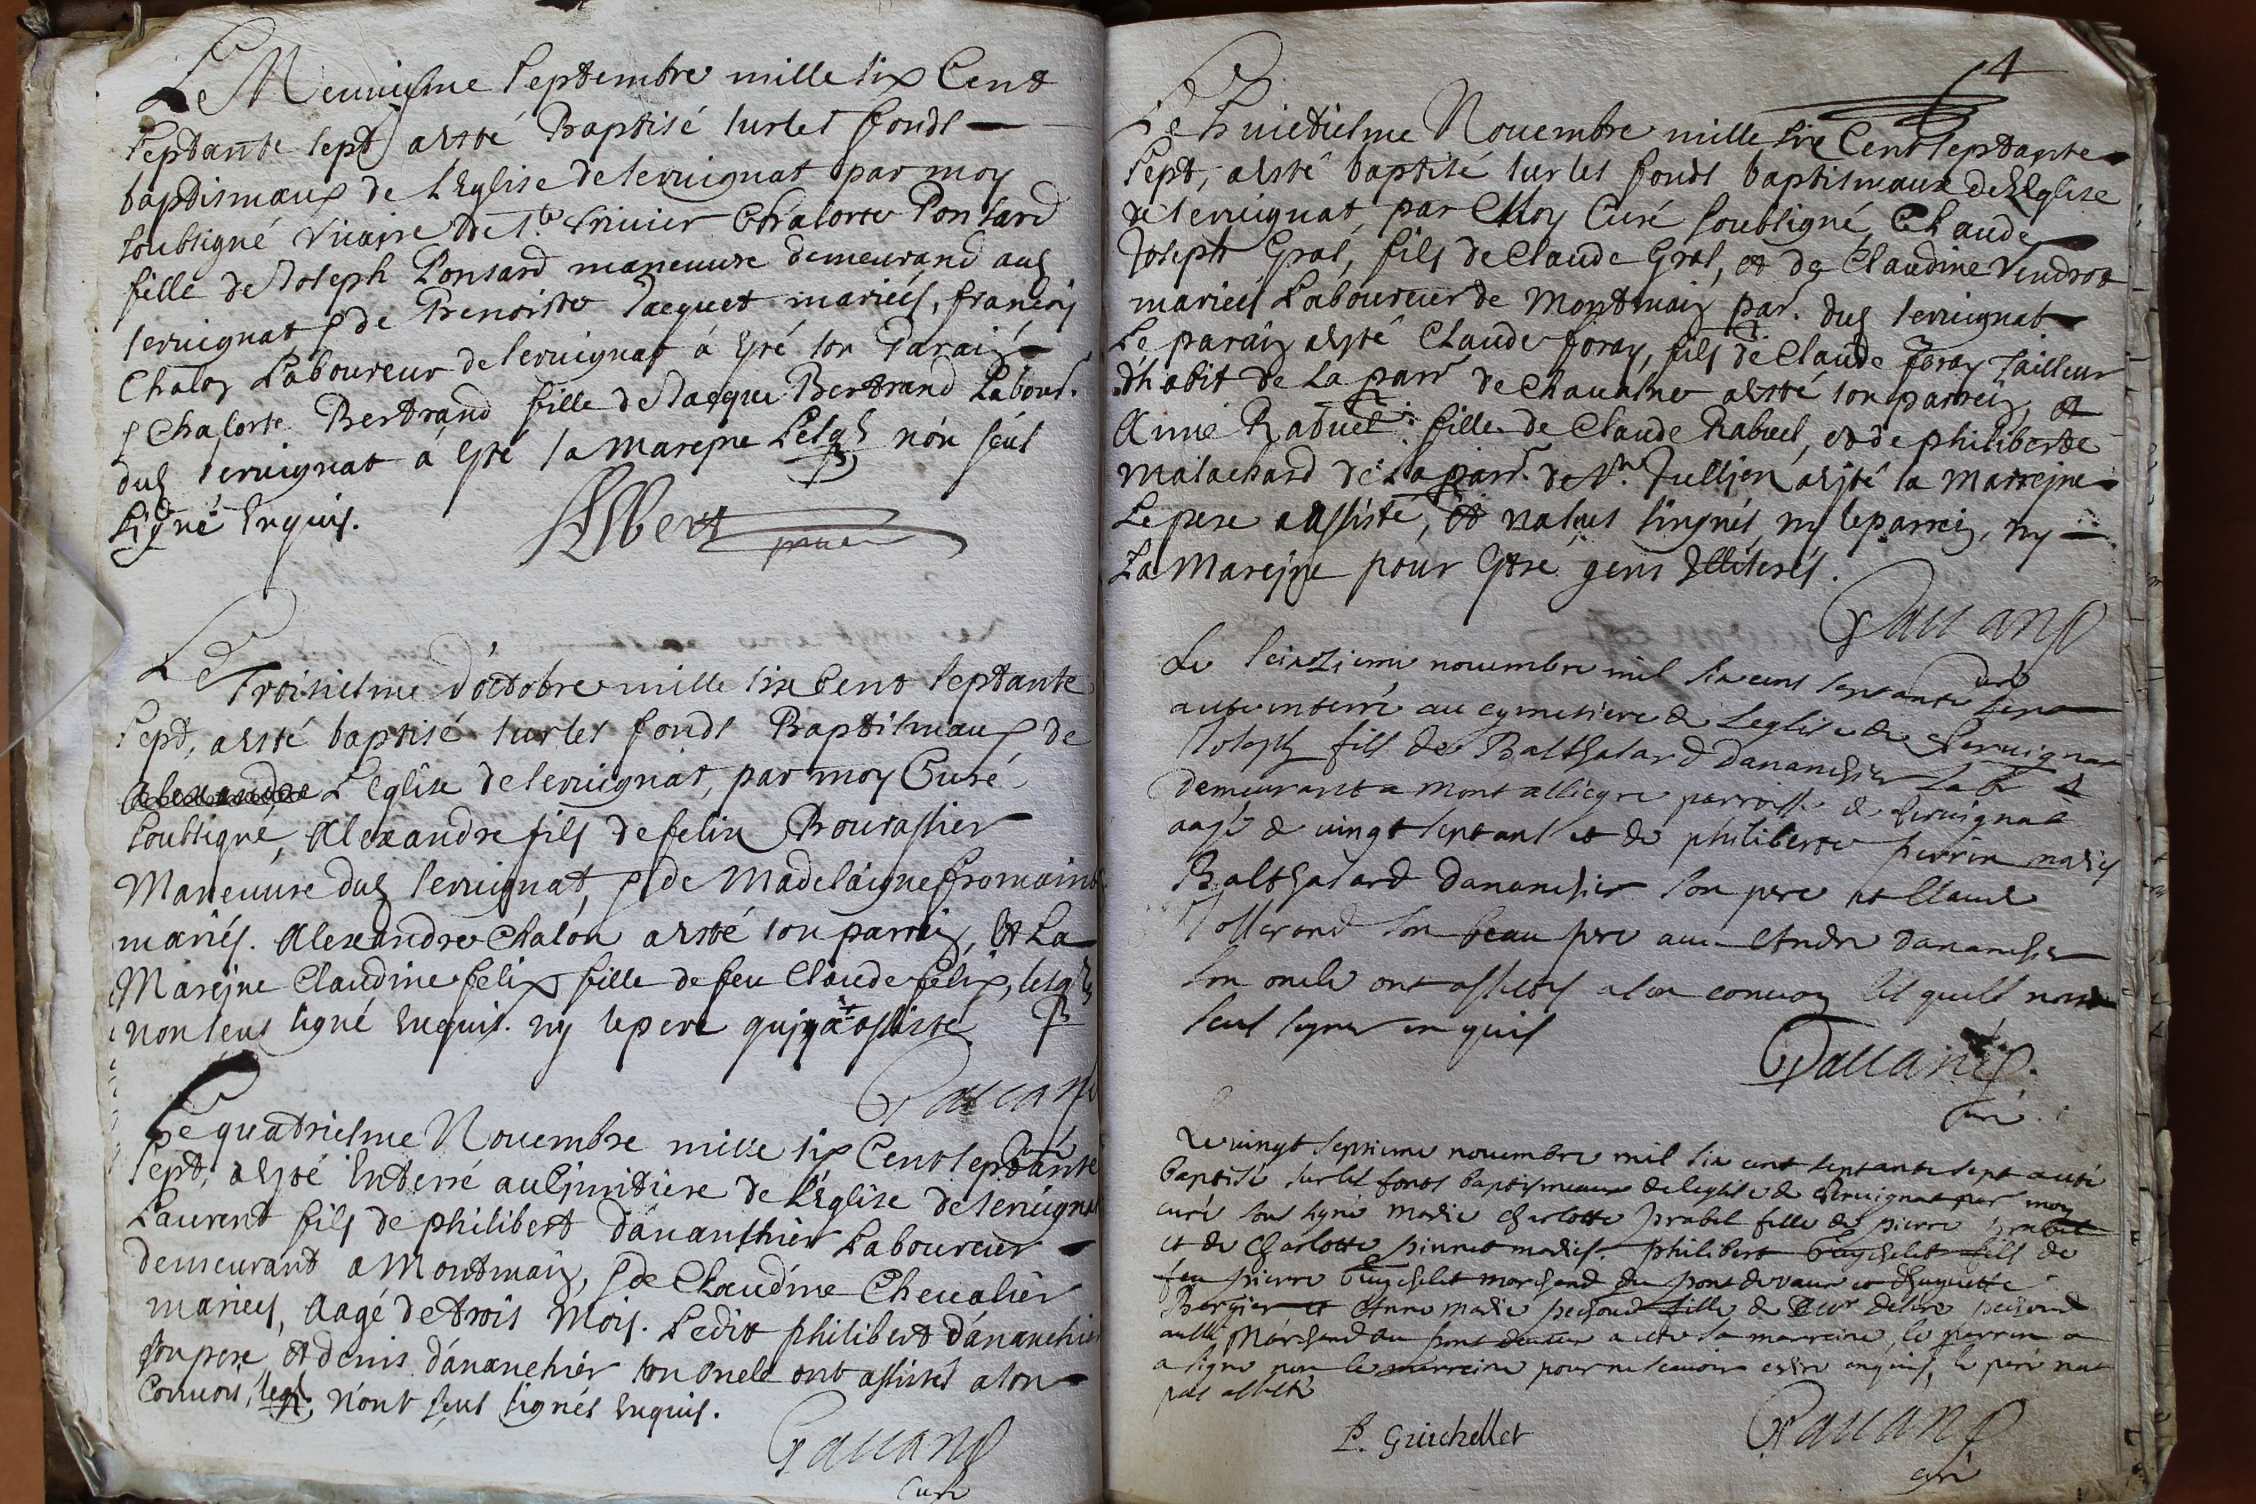 Le Neuuiesme Septembre mille six Cent
Septante sept a esté Baptisé sur les fonds
baptismaux de l'Eglise de seruignat par moy
soubsigné Vicaire de St. Triuier Charlotte Ponsard
fille de Joseph Ponsard maneuure demeurand aud
seruignat & de Benoiste Jacquet mariés, francois
Chalon Laboureur de seruignat à esté son Parain
& Charlotte Bertrand fille de Jacque Bertrand Labour.
dud seruignat a esté sa Mareine Lesqls n'on seus
signé Enquis.
Albert
Le Troisiesme d'octobre mille six Cent Septante
Sept, a esté baptisé sur les fonds Baptismaux de
L'Eglise de seruignat, par moy Curé
soubsigné, Alexandre fils de felix Bourassier
Maneuure dud seruignat, & de Madelaigne fromaint
mariés. Alexandre Chalon a esté son parrin, Et La
Mareine Claudine felix fille de feu Claude felix, lesqls
non seus signé Enquis. ny le pere qui y a assisté
Paccand
Curé
Le quatriesme Nouembre mille six Cent septante
Sept, a esté Enterré au Cimitiere de l'Eglise de seruignat
Laurent fils de philibert dananchier Laboureur
demeurant a Montmain, & de Claudine Cheualier
mariees, Aagé de trois Mois. Ledit philibert dananchier
son pere, et denis dananchier son oncle ont assistés a son
Conuois, lesqls n'ont seus signés Enquis.
Paccand
Curé
4
Le huictiesme Nouembre mille six Cent septante
Sept, a esté baptisé sur les fonds baptismaux de l'Eglise
de seruignat, par Moy Curé soubsigné Claude
Joseph Gras, fils de Claude Gras, et de Claudine Vendrot
mariees Laboureur de Montmain par. dud seruignat
Le parain a esté Claude foray, fils de Claude foray Tailleur
d'habit de La parr de Chauasne a esté son parrein, et
Anne Rabuel fille de Claude Rabuel, et de philiberte
Malachard de La parr. de St. Jullien a esté sa Marreine
Le pere a assisté, et n'a sus singnés, ny le parrein, ny
La Mareine pour estre gens Illiterés.
Paccand
curé
Le seiziemme nouembre mil six cens septante sept
a este enterré au cymetiere de Leglise de Seruignat
Joseph fils de Balthasard Dananchier Lab
demeurant a mont allicgre parroisse de seruignat
aagé de uingt sept ans et de philiberte perrin mariés
Balthasard Dananchier son pere et Claude
Tollerand son beau pere auec Andre dananchier
son oncle ont assistés a son conuoy lesquels nont
seus signer enquis
Paccand
Curé
Le uingt septieme nouembre mil six cent septante sept a esté
baptisé sur les fonts baptismeaux de leglise de seruignat par moy
curé sous signé Marie Charlotte prabel fille de pierre prabel
et de Charlotte pinnet mariés. philibert Guychelet fils de
feu pierre Guychelet marchand du pont de vaux et d'huguette
Bergier et Anne Marie peisoud fille de peisoud
Marchand au pont deuaux a esté sa marreine, le parrin a
a signé non le marreine pour ne scauoir escire enquis, le peré nat
pas assisté
P. Guichellet
Paccand
curé